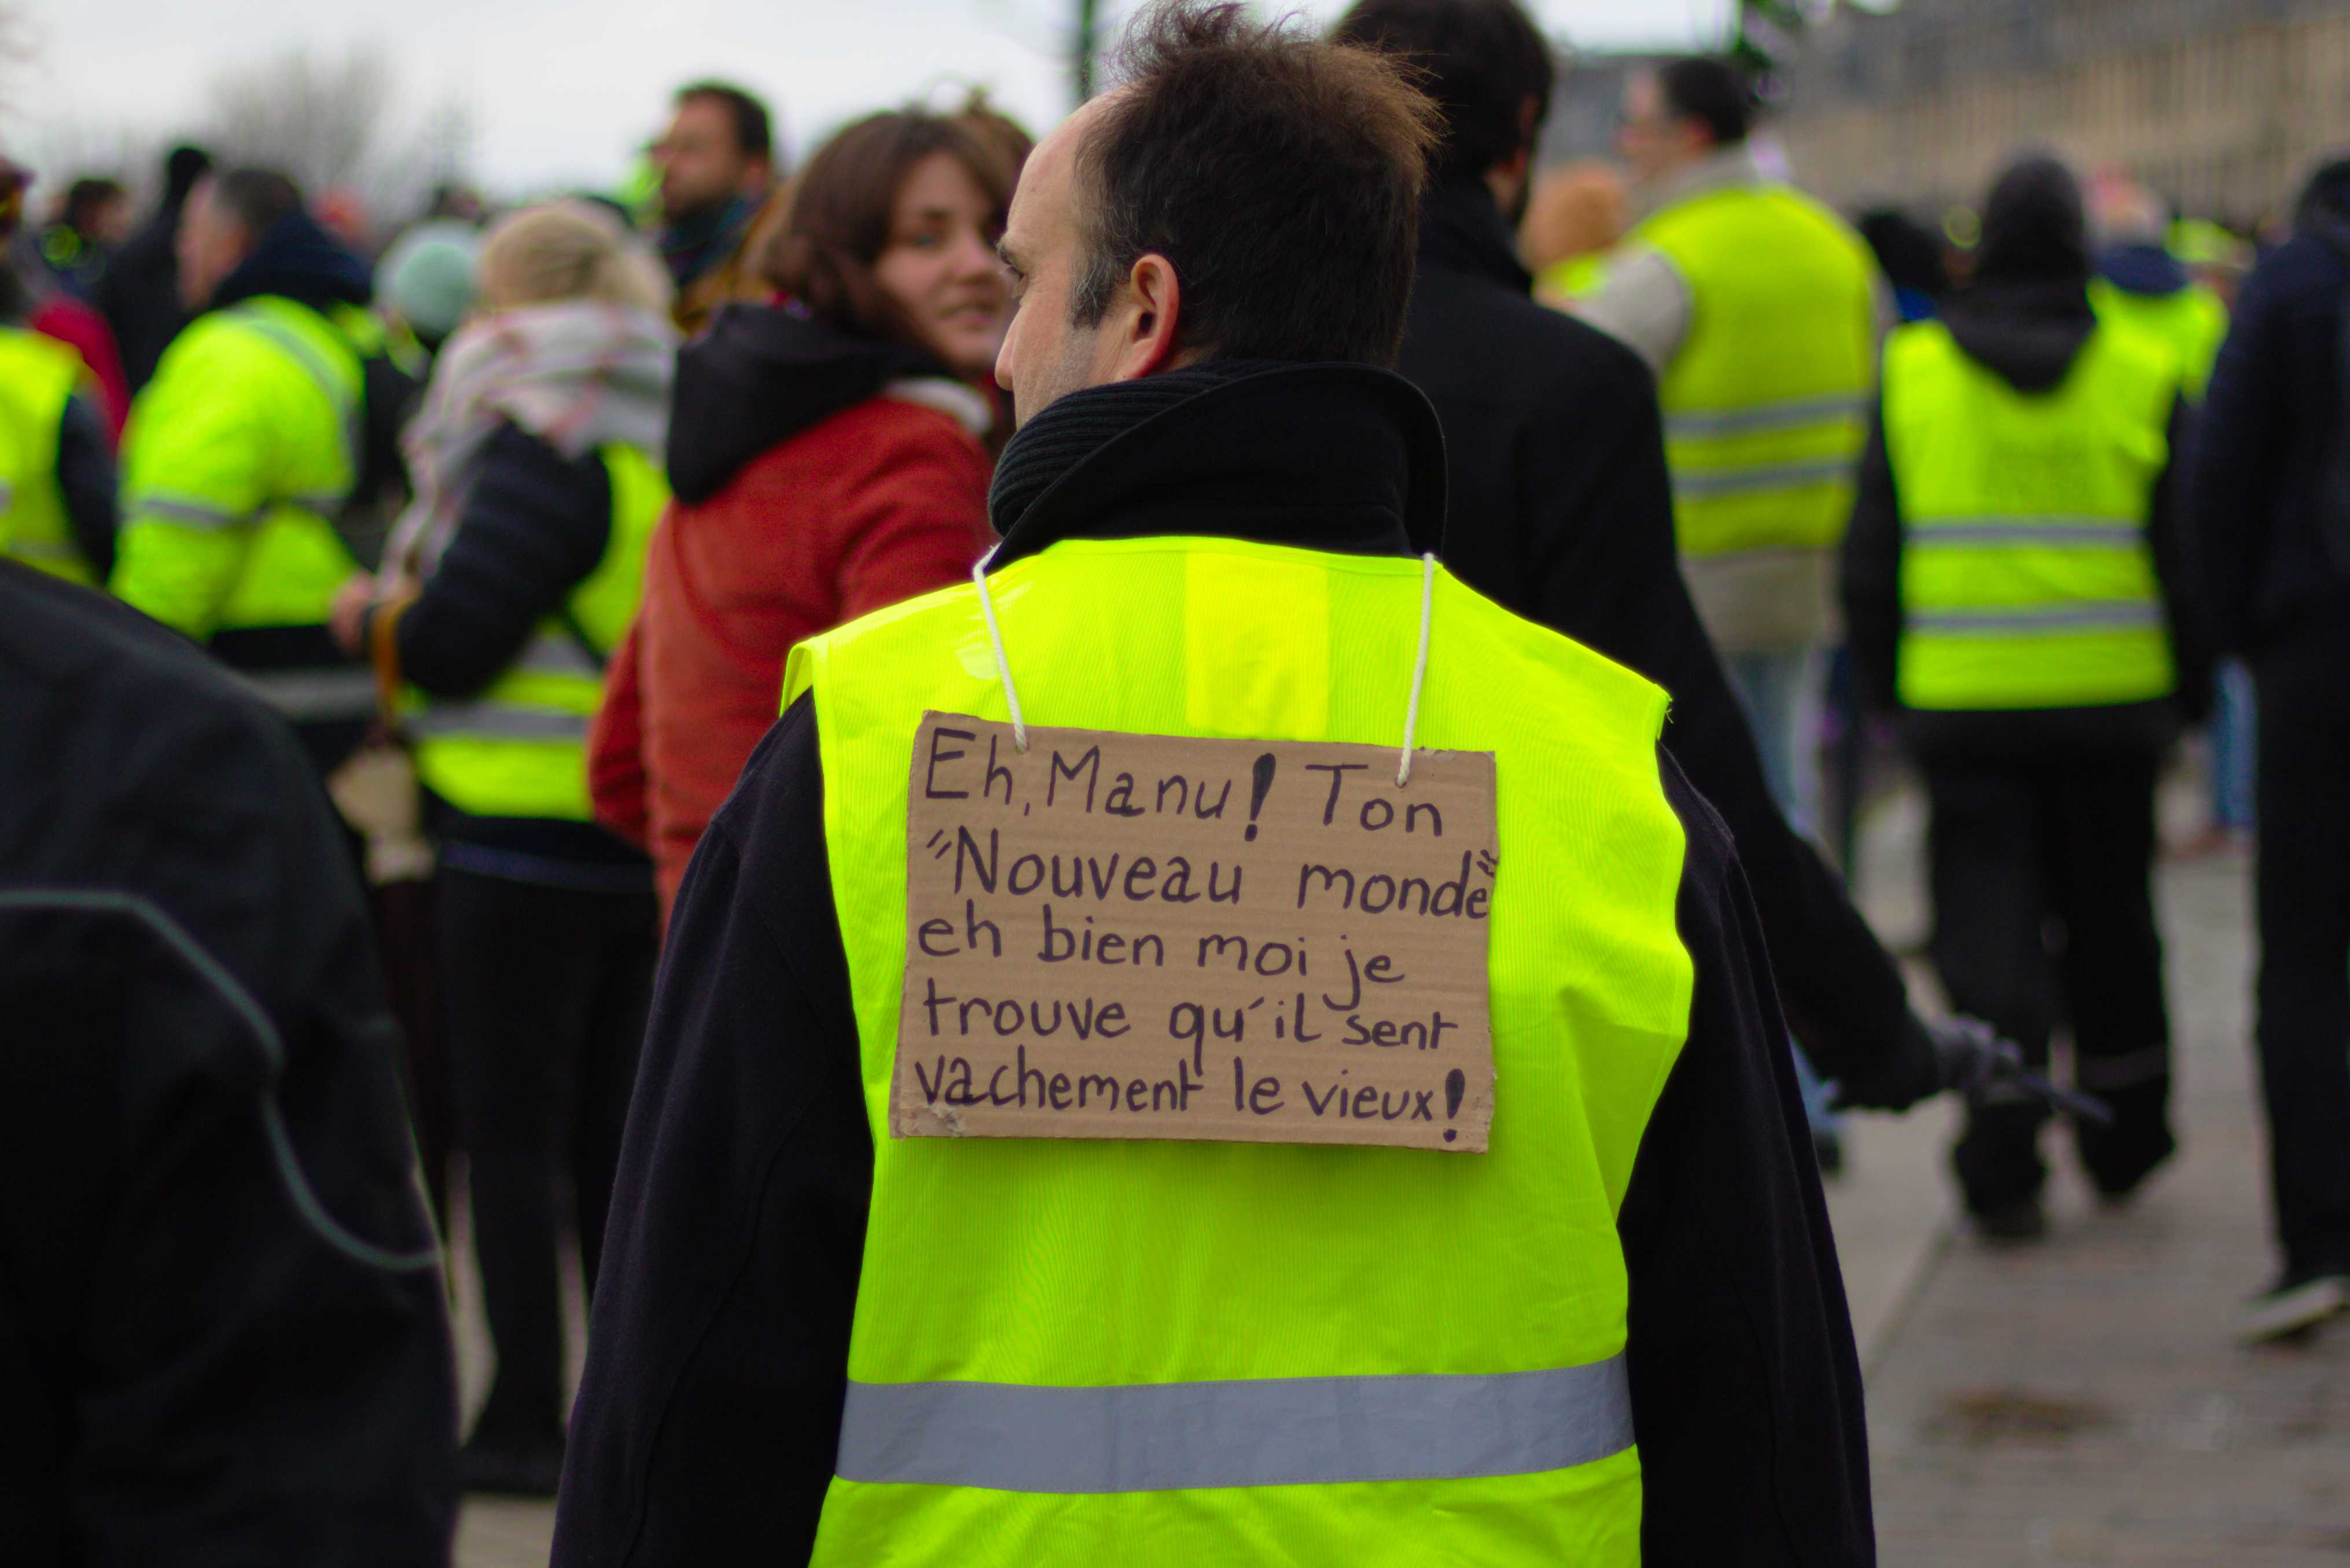 Eh, Manu! Ton
"Nouveau monde"
eh bien moi je
trouve qu'il sent
vachement le vieux!